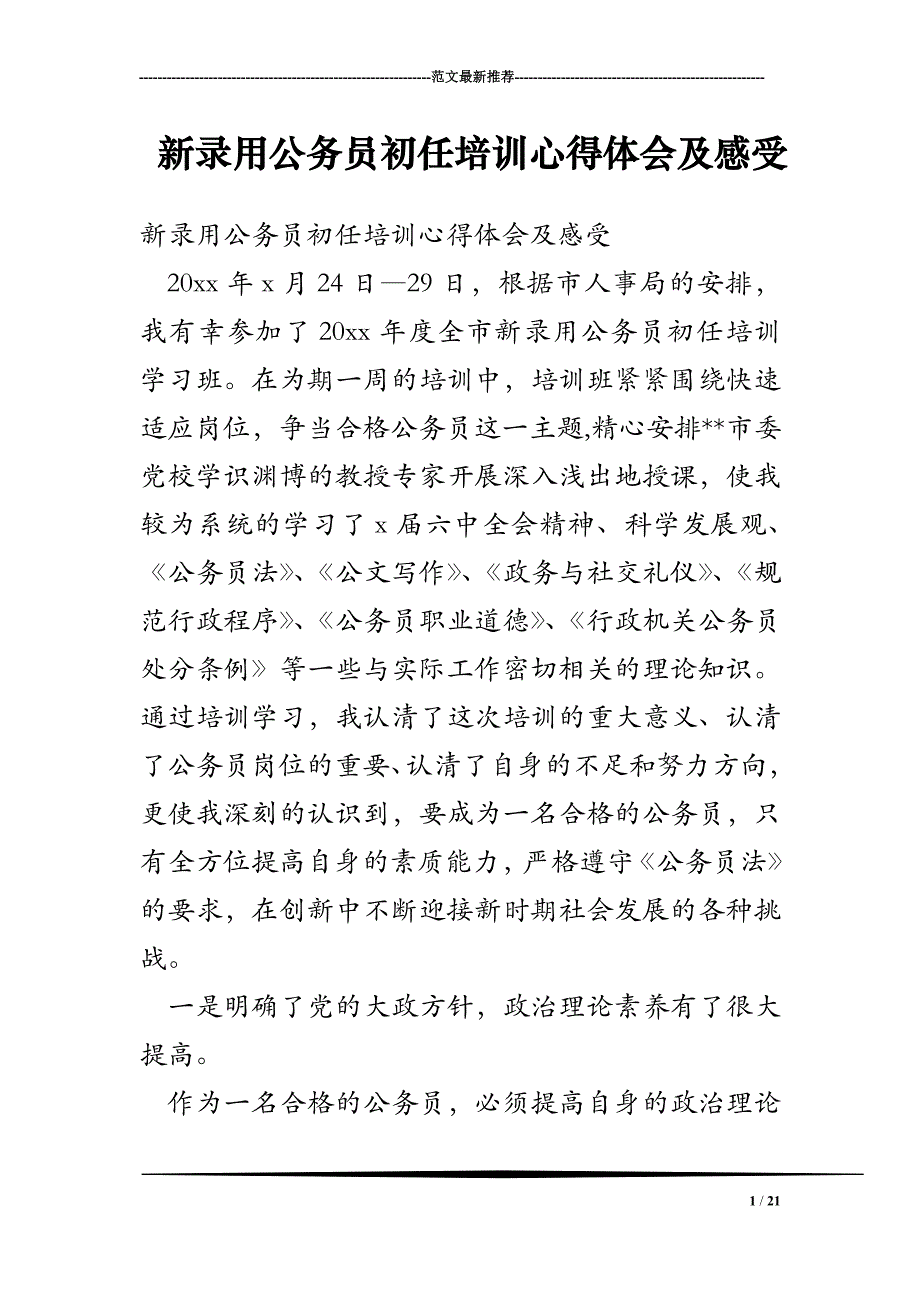 ---------------------------------------------------------------范文最新推荐------------------------------------------------------
新录用公务员初任培训心得体会及感受
新录用公务员初任培训心得体会及感受
20xx 年 x 月 24 日—29 日，根据市人事局的安排，
我有幸参加了 20xx 年度全市新录用公务员初任培训
学习班。在为期一周的培训中，培训班紧紧围绕快速
适应岗位，争当合格公务员这一主题,精心安排**市委
党校学识渊博的教授专家开展深入浅出地授课，使我
较为系统的学习了 x 届六中全会精神、科学发展观、
《公务员法》、《公文写作》、《政务与社交礼仪》、《规
范行政程序》、《公务员职业道德》、《行政机关公务员
处分条例》等一些与实际工作密切相关的理论知识。
通过培训学习，我认清了这次培训的重大意义、认清
了公务员岗位的重要、认清了自身的不足和努力方向，
更使我深刻的认识到，要成为一名合格的公务员，只
有全方位提高自身的素质能力，严格遵守《公务员法》
的要求，在创新中不断迎接新时期社会发展的各种挑
战。
一是明确了党的大政方针，政治理论素养有了很大
提高。
作为一名合格的公务员，必须提高自身的政治理论
1 / 21